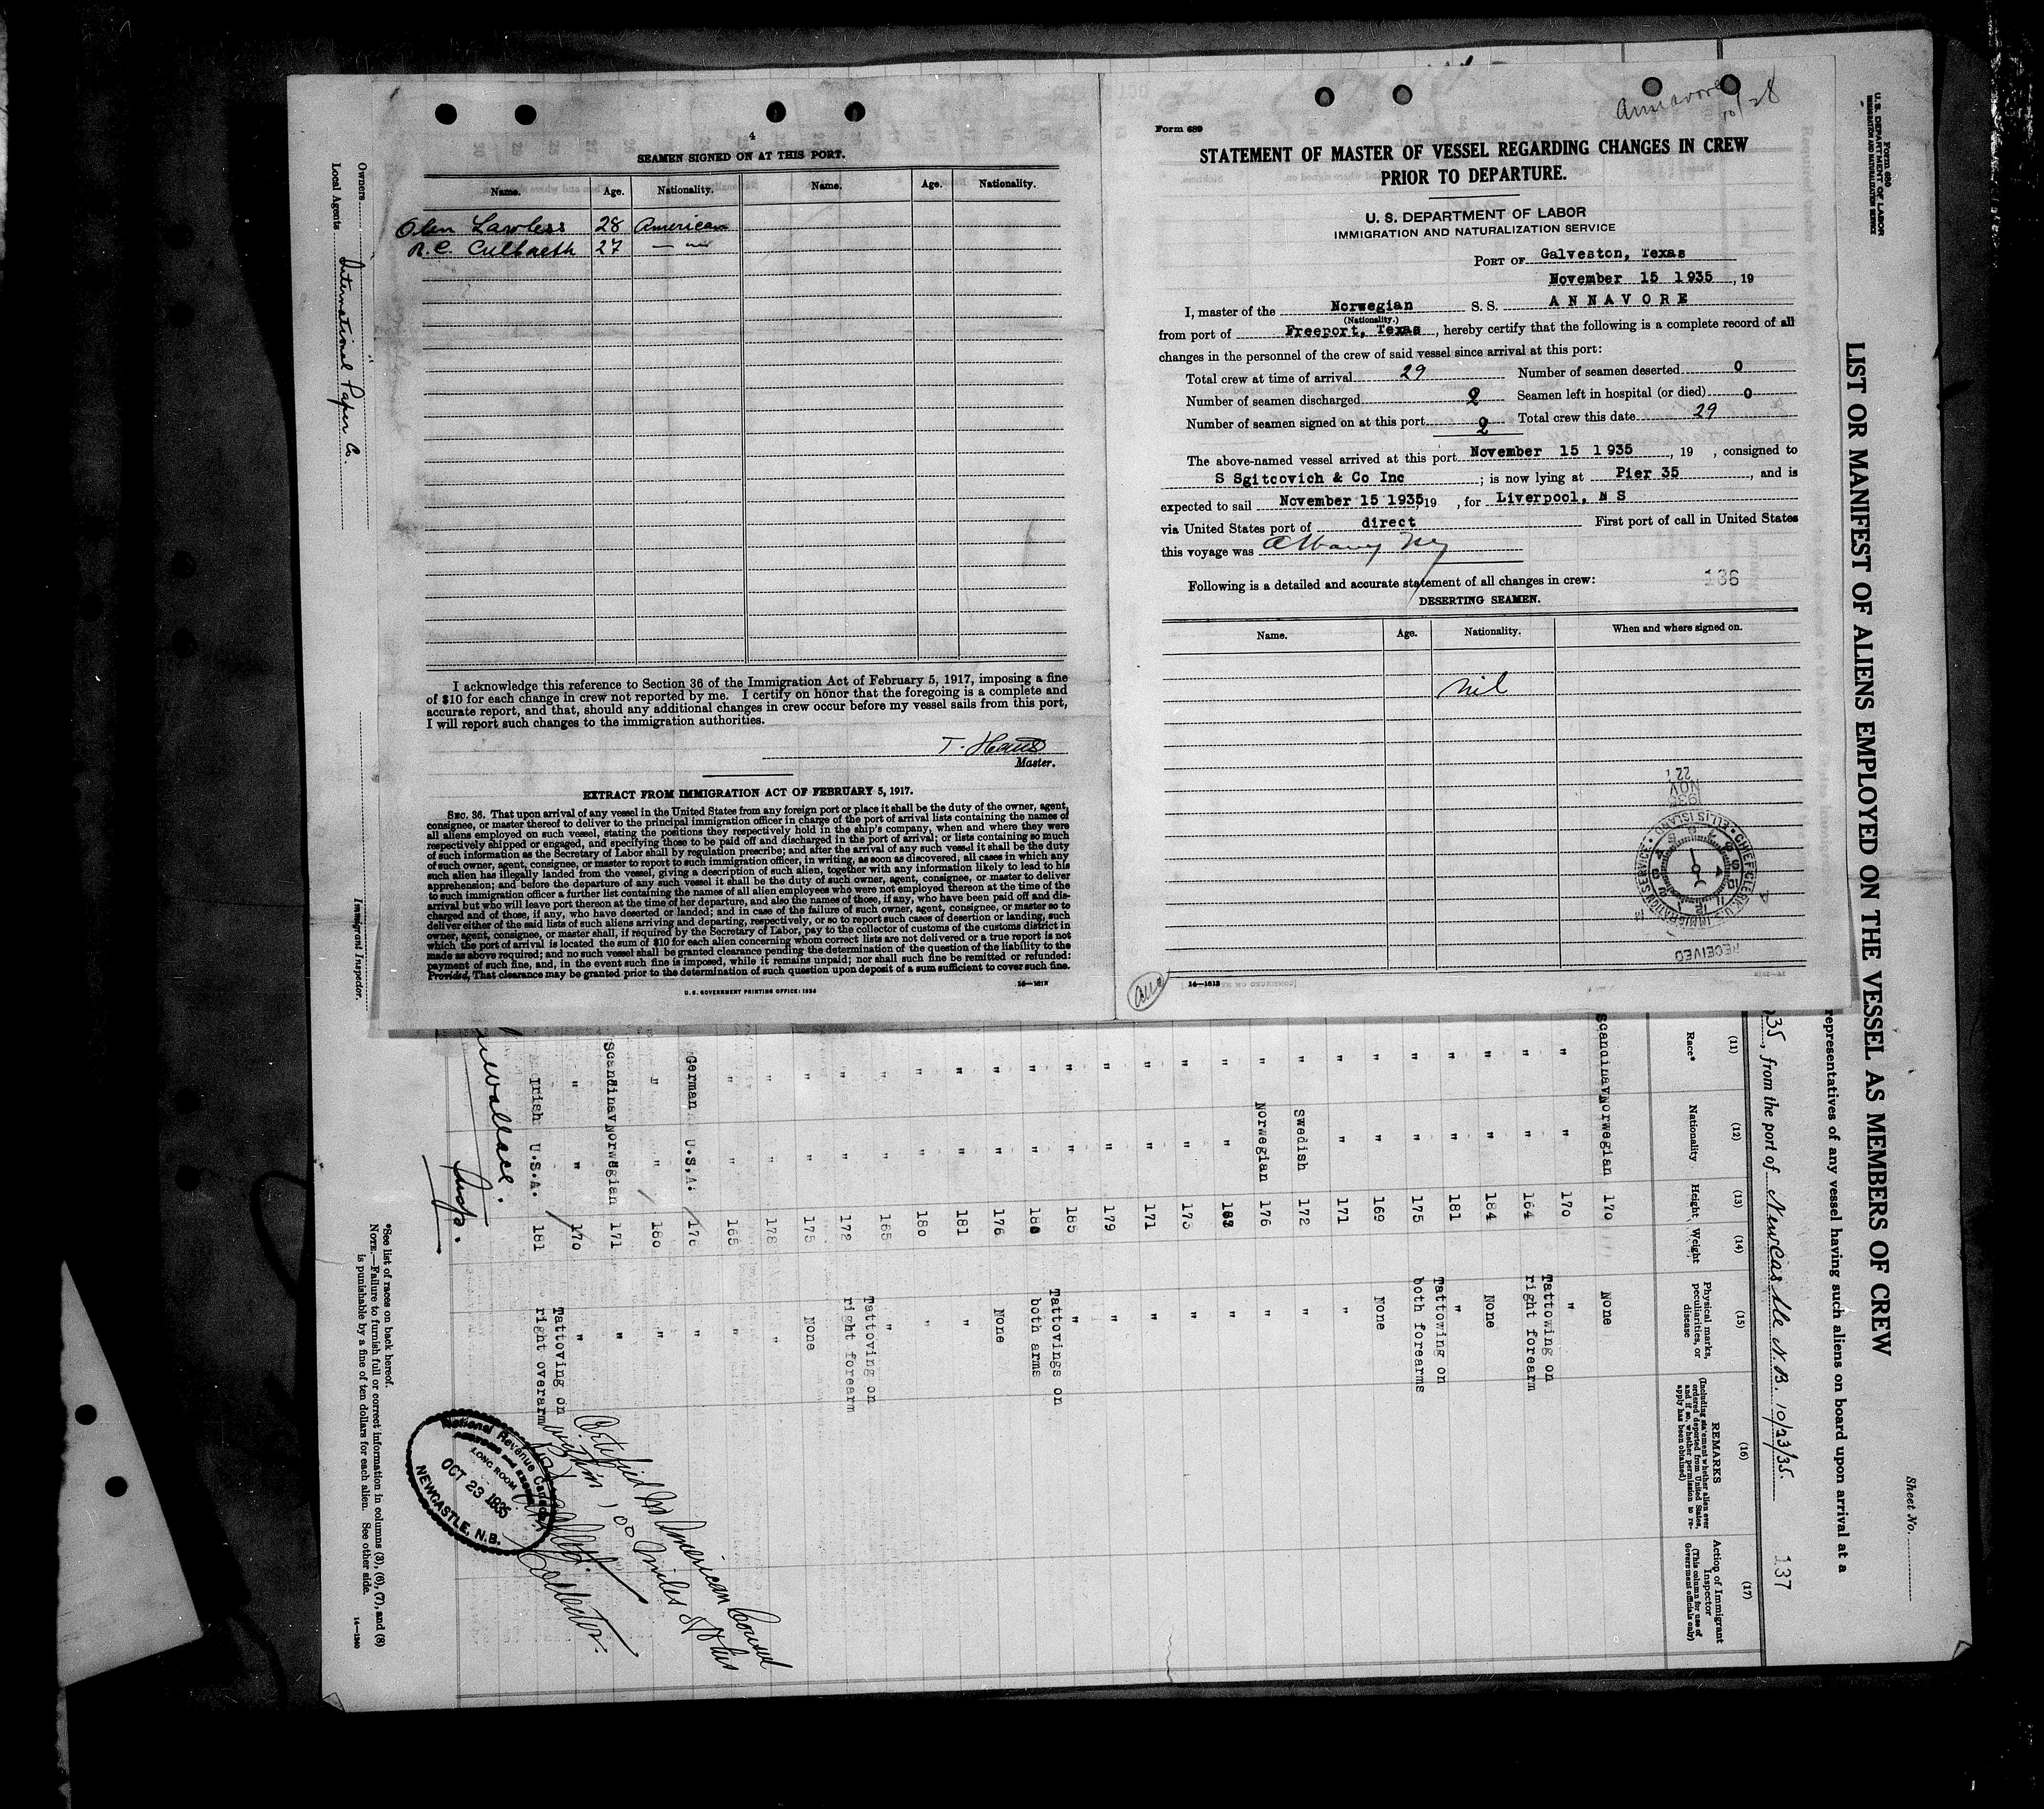 4
SEAMEN SIGNED ON AT THIS PORT.
Name. Age. Nationality. Name. Age. Nationality.
Olen Lawless 28 American
R.C. Culbreth 27 — " —
I acknowledge this reference to Section 36 of the Immigration Act of February 5, 1917, imposing a fine
of $10 for each change in crew not reported by me. I certify on honor that the foregoing is a complete and
accurate report, and that, should any additional changes in crew occur before my vessel sails from this port,
I will report such changes to the immigration authorities.
Master.
EXTRACT FROM IMMIGRATION ACT OF FEBRUARY 5, 1917.
SEC. 36. That upon arrival of any vessel in the United States from any foreign port or place it shall be the duty of the owner, agent,
consignee, or master thereof to deliver to the principal immigration officer in charge of the port of arrival lists containing the names of
all aliens employed on such vessel, stating the positions they respectively hold in the ship's company, when and where they were
respectively shipped or engaged, and specifying those to be paid off and discharged in the port of arrival; or lists containing so much
of such information as the Secretary of Labor shall by regulation prescribe; and after the arrival of any such vessel it shall be the duty
of such owner, agent, consignee, or master to report to such immigration officer, in writing, as soon as discovered, all cases in which any
such alien has illegally landed from the vessel, giving a description of such alien, together with any information likely to lead to his
apprehension; and before the departure of any such vessel it shall be the duty of such owner, agent, consignee, or master to deliver
to such immigration officer a further list containing the names of all alien employees who were not employed thereon at the time of the
arrival but who will leave port thereon at the time of her departure, and also the names of those, if any, who have been paid off and dis-
charged and of those, if any, who have deserted or landed; and in case of the failure of such owner, agent, consignee, or master so to
deliver either of the said lists of such aliens arriving and departing, respectively, or so to report such cases of desertion or landing, such
owner, agent, consignee, or master shall, if required by the Secretary of Labor, pay to the collector of customs of the customs district in
which the port of arrival is located the sum of $10 for each alien concerning whom correct lists are not delivered or a true report is not
made as above required; and no such vessel shall be granted clearance pending the determination of the question of the liability to the
payment of such fine, and, in the event such fine is imposed, while it remains unpaid; nor shall such fine be remitted or refunded:
Provided, That clearance may be granted prior to the determination of such question upon deposit of a sum sufficient to cover such fine.
U. S. GOVERNMENT PRINTING OFFICE: 1934
16—1613
Annavore
10/28
Form 689
STATEMENT OF MASTER OF VESSEL REGARDING CHANGES IN CREW
PRIOR TO DEPARTURE.
U. S. DEPARTMENT OF LABOR
IMMIGRATION AND NATURALIZATION SERVICE
PORT OF Galveston, Texas
November 15 1935, 19
I, master of the Norwegian S. S. ANNAVORE
(Nationality.)
from port of Freeport, Texas, hereby certify that the following is a complete record of all
changes in the personnel of the crew of said vessel since arrival at this port:
Total crew at time of arrival 29 Number of seamen deserted 0
Number of seamen discharged 2 Seamen left in hospital (or died) 0
Number of seamen signed on at this port 2 Total crew this date 29
The above-named vessel arrived at this port November 15 1935, 19 , consigned to
S Sgitcovich & Co Inc ; is now lying at Pier 35 , and is
expected to sail November 15 1935, 19 , for Liverpool, N S
via United States port of direct First port of call in United States
this voyage was Albany NY
Following is a detailed and accurate statement of all changes in crew: 136
DESERTING SEAMEN.
Name. Age. Nationality. When and where signed on.
nil
22
NOV
1935
CHIEF CLERK U.S. IMMIGRATION SERVICE ELLIS ISLAND
RECEIVED
16—1613
Form 680
U. S. DEPARTMENT OF LABOR
IMMIGRATION AND NATURALIZATION SERVICE
Sheet No.
LIST OR MANIFEST OF ALIENS EMPLOYED ON THE VESSEL AS MEMBERS OF CREW
representatives of any vessel having such aliens on board upon arrival at a
35, from the port of Newcastle N.B. 10/23/35. 137
(11) (12) (13) (14) (15) (16) (17)
Race* Nationality Height Weight Physical marks, peculiarities, or disease
REMARKS
(Including statement whether alien ever ordered deported from United States, and if so, whether permission to re-apply has been obtained)
Action of Immigrant Inspector
(This column for use of Government officials only)
Scandinav Norwegian 170 None
" " 170 "
" " 164 Tattowing on right forearm
" " 184 None
" " 181 "
" " 175 Tattowing on both forearms
" " 169 None
" " 171 "
" Swedish 172 "
" Norwegian 176 "
" " 163 "
" " 173 "
" " 171 "
" " 179 "
" " 185 "
" " 180 Tattovings on both arms
" " 176 None
" " 181 "
" " 180 "
" " 165 "
" " 172 Tattoving on right forearm
" " 175 None
" " 178 "
" " 165 "
German U.S.A. 176 "
" " 180 "
Scandinav Norwegian 171 "
" " 170 "
Irish U.S.A. 181 Tattoving on right overarm
Insp.
Certified no American Consul
within 100 miles of this
Port
Collector.
National Revenue Canada
CUSTOMS and EXCISE
LONG ROOM
OCT 23 1935
NEWCASTLE, N.B.
*See list of races on back hereof.
NOTE.—Failure to furnish full or correct information in columns (3), (6), (7), and (8)
is punishable by a fine of ten dollars for each alien. See other side.
14—1240
Owners
Local Agents International Paper Co.
Immigrant Inspector.